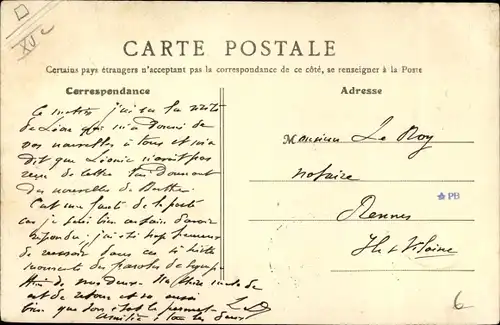 XV c
CARTE POSTALE
Certains pays étrangers n'acceptant pas la correspondance de ce côté, se renseigner à la Poste
Correspondance
Adresse
Ce matin j'ai eu la visite
de Léon qui m'a donné de
vos nouvelles à tous et m'a
dit que Léonie n'avait pas
reçu de lettre lui donnant
des nouvelles de Berthe
C'est une faute de la poste
car je suis bien certain d'avoir
répondu, j'ai été trop heureux
de recevoir dans ces si tristes
moments des paroles de
de
est de retour et va aussi
bien que
Amitiés à tous les deux
Monsieur Le Roy
notaire
Rennes
Ille & Vilaine
PB
6